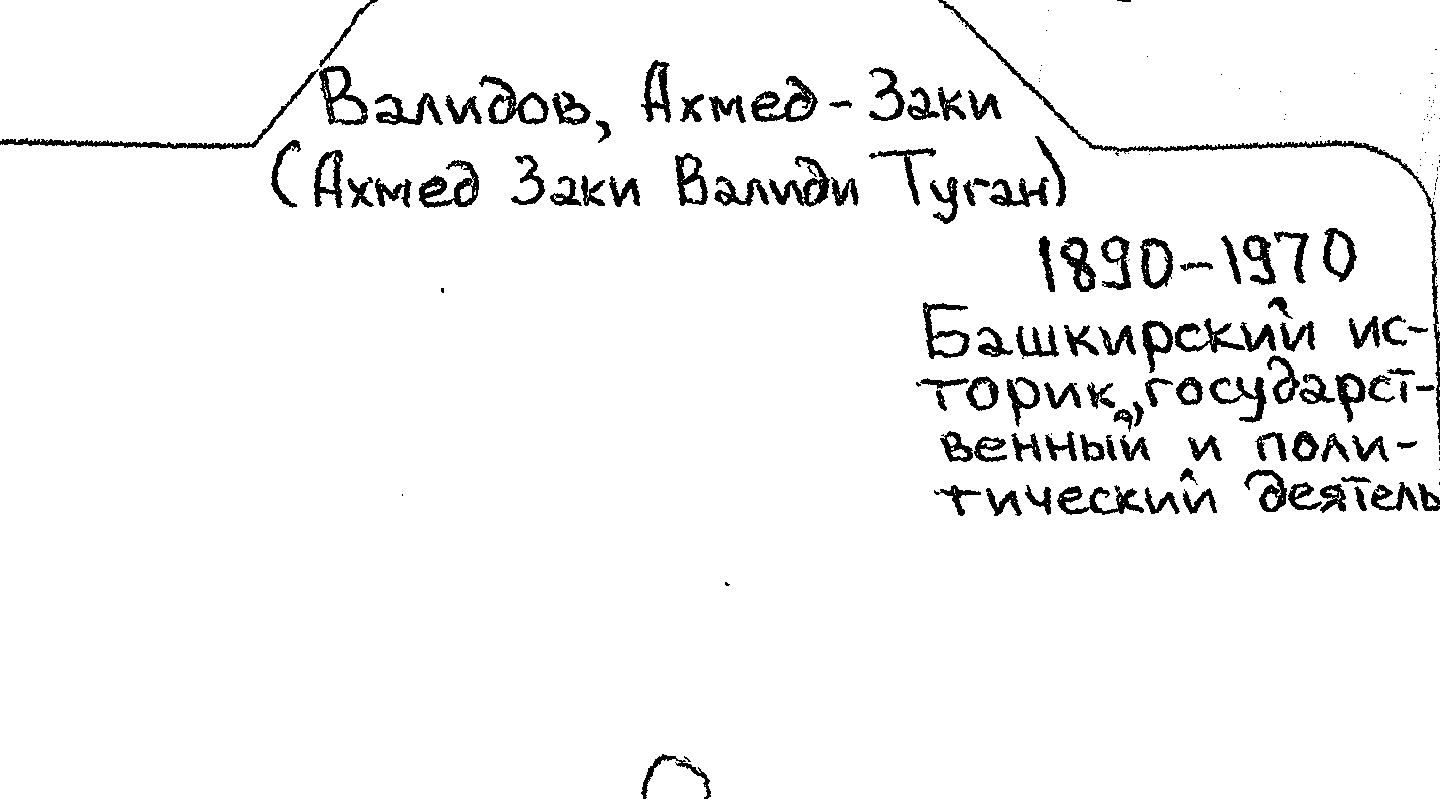 Валидов, Ахмед-Заки
(Ахмед Заки Валиди Туган)
1890-1970
Башкирский ис-
торик, государст-
венный и поли-
тический деятель